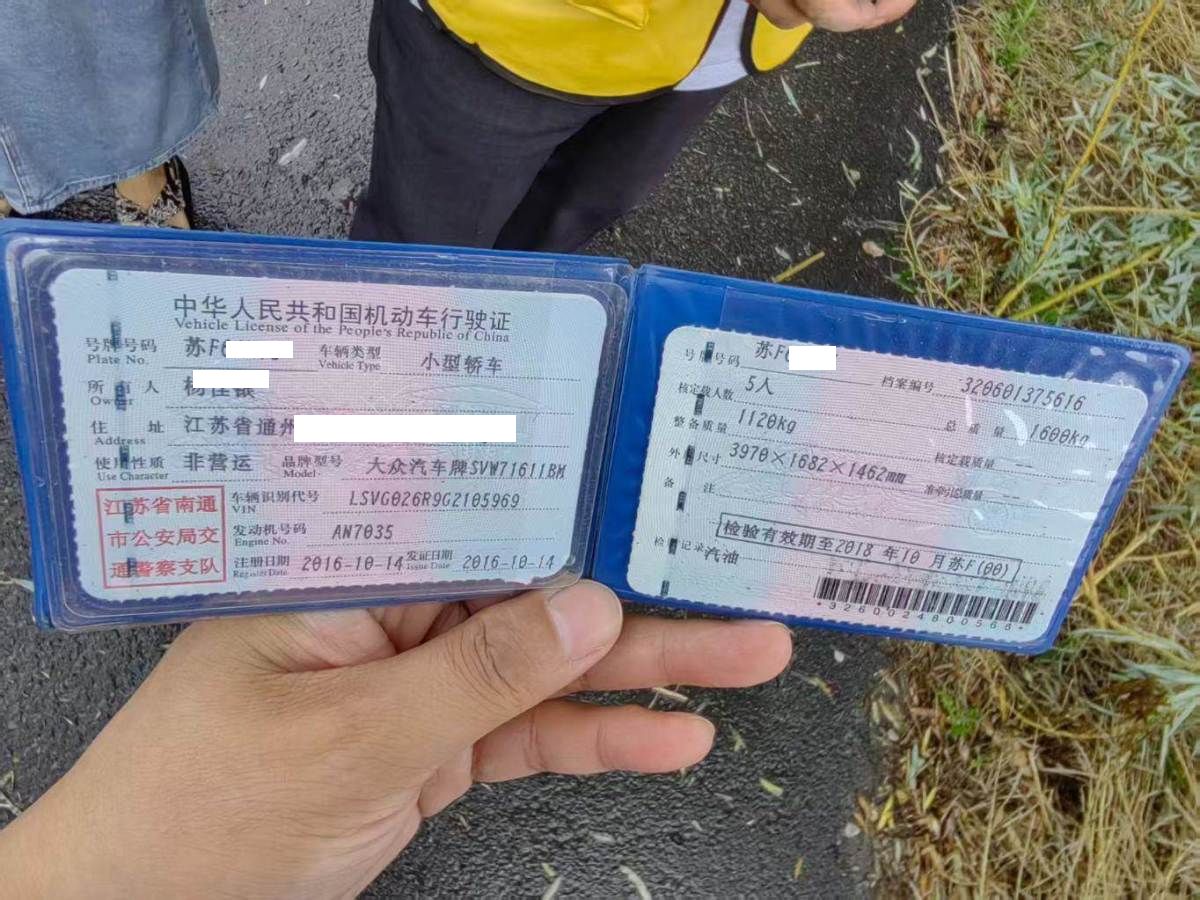 中华人民共和国机动车行驶证
Vehicle License of the People's Republic of China
号牌号码 苏F 车辆类型 小型轿车
Plate No. Vehicle Type
所有人
Owner
住址 江苏省通州
Address
使用性质 非营运 品牌型号 大众汽车牌SVW71611BM
Use Character Model
江苏省南通
市公安局交
通警察支队
车辆识别代号 LSVG026R9G2105969
VIN
发动机号码 AN7035
Engine No.
注册日期 2016-10-14 发证日期 2016-10-14
Register Date Issue Date
号牌号码 苏F 档案编号 320601375616
核定载人数 5人 总质量 1600kg
整备质量 1120kg 核定载质量 --
外廓尺寸 3970×1682×1462mm 准牵引总质量 --
备注
检验有效期至2018年10月苏F(00)
检验记录 汽油
*3260024800566*